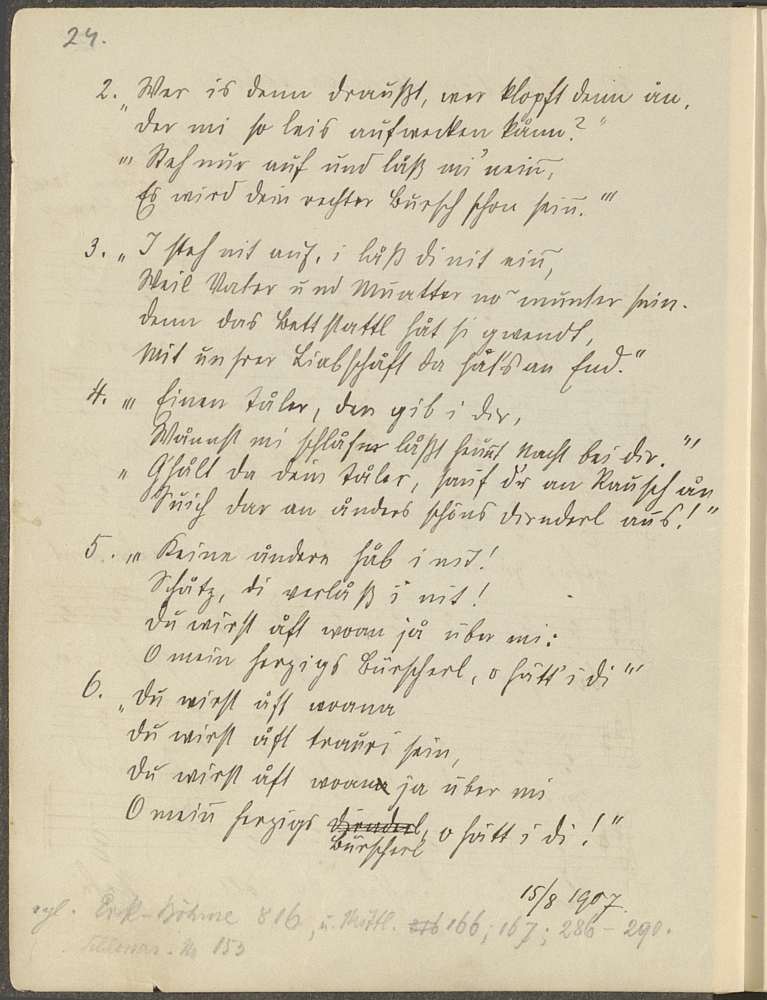 24.
2. „Wer is denn draußt, wer klopft denn ån,
der mi so leis aufwecken kånn?"
"' Steh nur auf und låß mi' nein,
Es wird dein rechter Bursch schon sein."'
3. „I steh nit auf, i låß di nit ein,
Weil Vater und Muatter no munter sein.
Denn das Bettstattl håt si gwendt,
Mit unsrer Liabschåft da håt's an End."
4. "' Einen Tåler, den gib i dir,
Wånnst mi schlåfen låßt heunt Nacht bei dir."'
„Ghålt da dein Tåler, sauf dir an Rausch ån
Suich dar an ånders schöns Dirnderl aus!"
5. "' Keine åndere håb i nit!
Schåtz, di verlåß i nit!
Du wirst åft woan jå über mi:
O mein herzigs Bürscherl, o hätt' i di"'
6. „Du wirst åft woana
Du wirst åft trauri sein,
Du wirst åft woana ja über mi
O mein herzigs Dirnderl, o hätt i di!"
Bürscherl
15/8 1907.
vgl. Erk-Böhme 816, u. Mittl. 166; 167; 286-290.
No 153